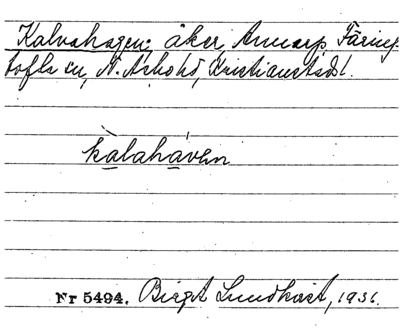 Kalvahagen; åker, Annarp, Färing-
tofta sn, N. Åsbohd, Kristianstads l.
kàlahávən
Nr 5494. Birgit Lundkvist, 1936.